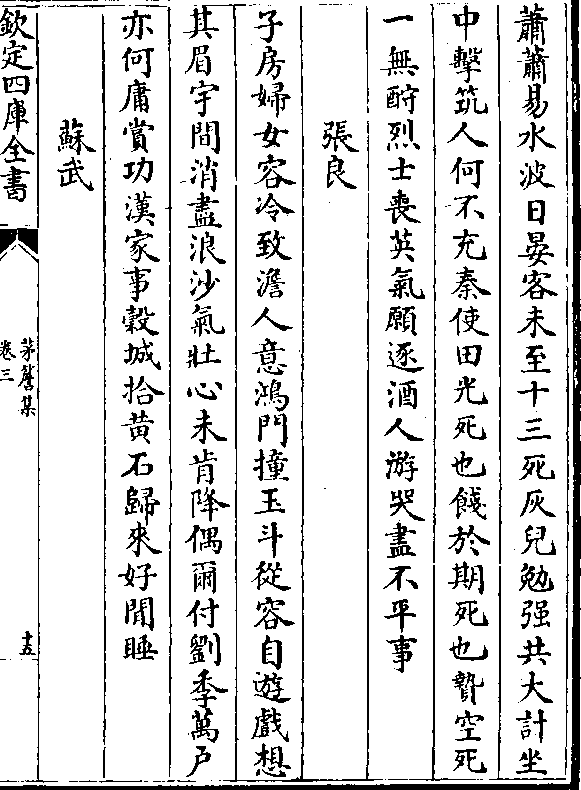 蕭蕭易水波日晏客未至十三死灰兒勉强共大計坐
中擊筑人何不充秦使田光死也餞於期死也贄空死
一無酧烈士喪英氣願逐酒人游哭盡不平事
張良
子房婦女容冷致澹人意鴻門撞玉斗從容自遊戲想
其眉宇間消盡浪沙氣壯心未肯降偶爾付劉季萬户
亦何庸賞功漢家事穀城拾黄石歸來好閒睡
蘇武
欽定四庫全書
茅簷集
卷三
十五